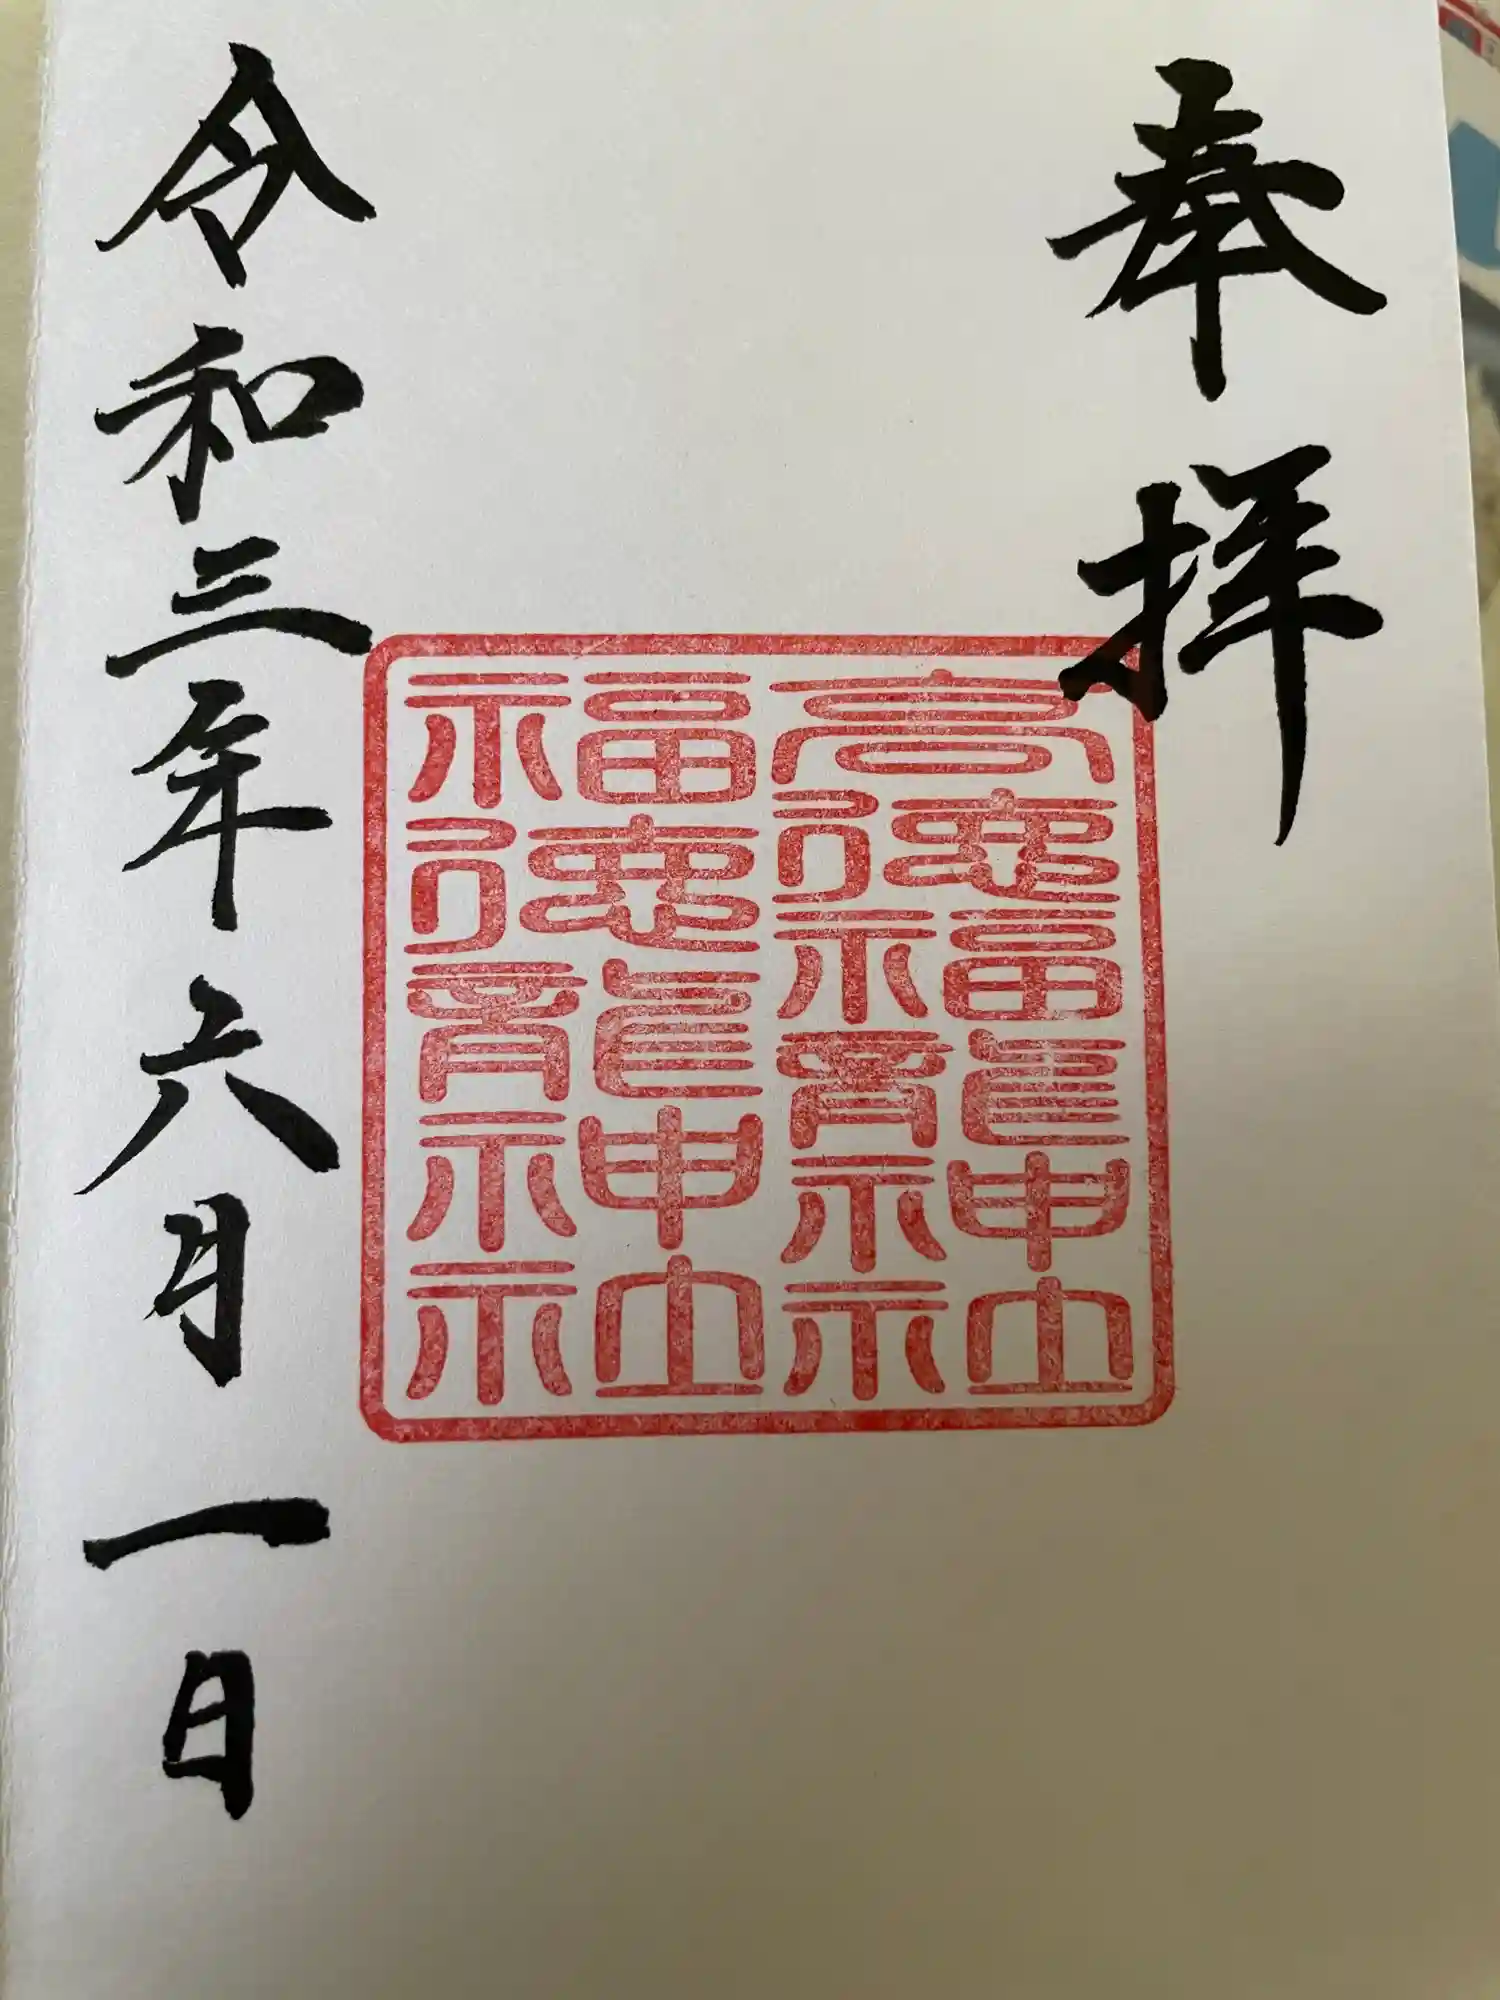 奉拝
高徳福龍神社
福徳龍神社
令和三年六月一日